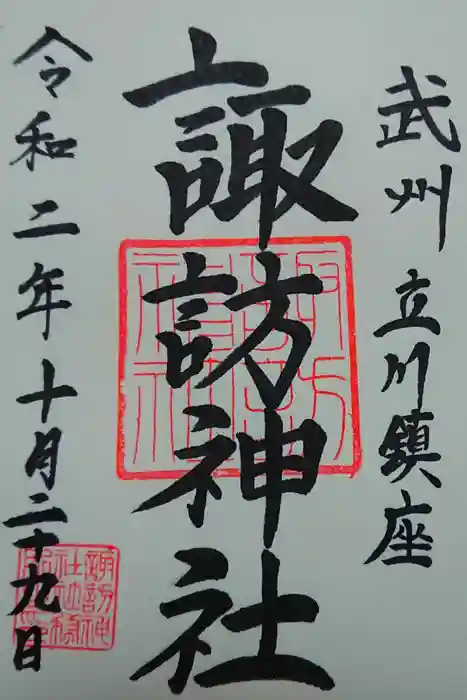 武州 立川鎮座
諏訪神社
令和二年十月二十九日
諏訪神社